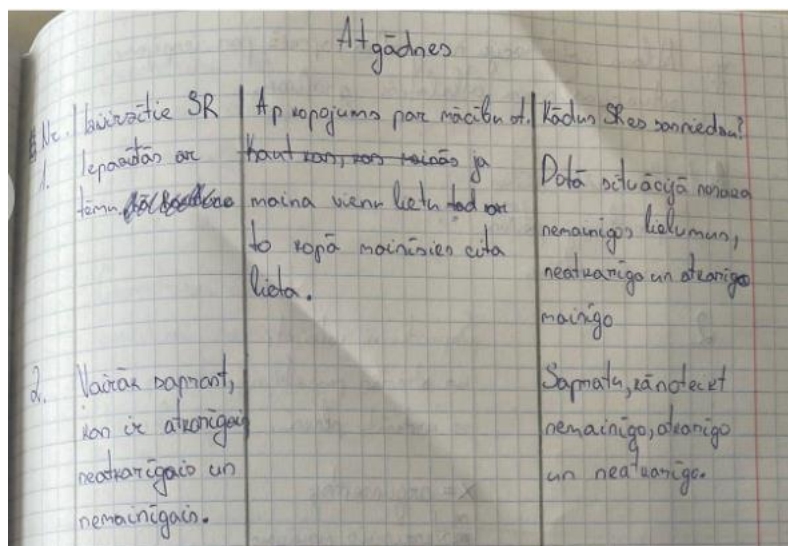 Atgādnes
Nr. | Izvirzītie SR | Apkopojums par mācību st. | Kādus SR es sasniedzu?
1. Iepazītās ar
tēmu
kaut kas, kas mainās ja
maina vienu lietu tad ar
to kopā mainīsies cita
lieta.
Dotā situācijā nosaka
nemainīgos lielumus,
neatkarīgo un atkarīgo
mainīgo
2. Vairāk saprast,
kas ir atkarīgais
neatkarīgais un
nemainīgais.
Sapratu, kā noteikt
nemainīgo, atkarīgo
un neatkarīgo.